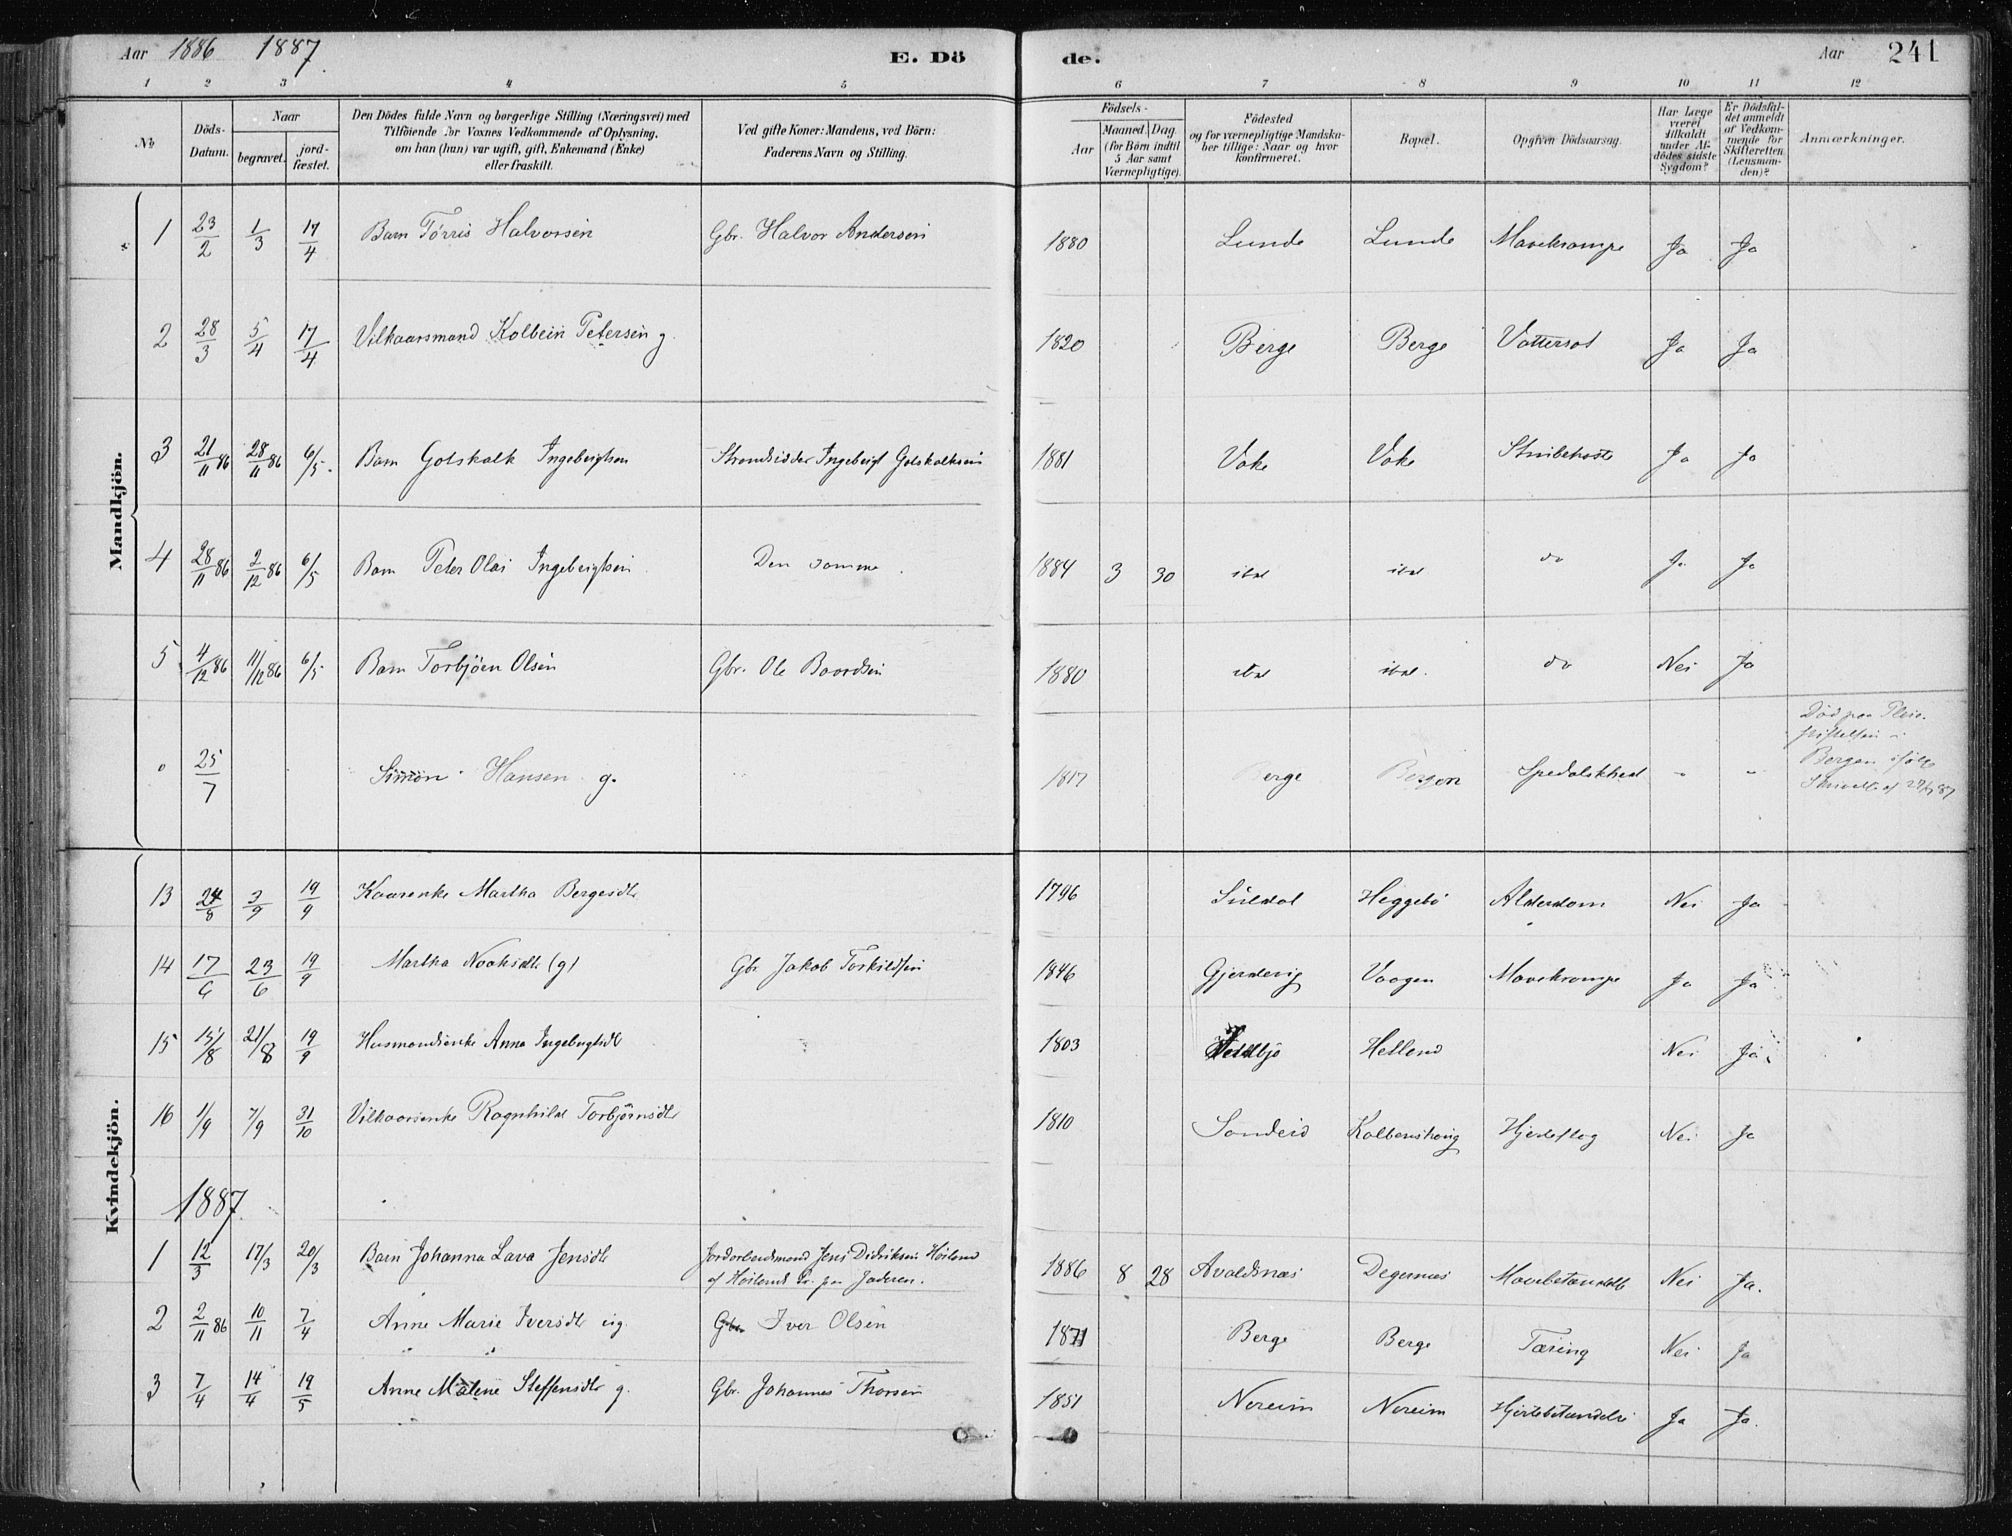 Aar 1886 1887. E. Döde. Aar 241
1 2 3 4 5 6 7 8 9 10 11 12
No
Döds-Datum.
Naar
begravet.
jordfæstet.
Den Dödes fulde Navn og borgerlige Stilling (Næringsvei) med
Tilföiende for Voxnes Vedkommende af Oplysning,
om han (hun) var ugift, gift, Enkemand (Enke)
eller fraskilt.
Ved gifte Koner: Mandens, ved Börn:
Faderens Navn og Stilling.
Födsels-
Aar
Maaned. Dag
(for Börn indtil
5 Aar samt
Værnepligtige).
Födested
og for værnepligtige Mandskaber tillige: Naar og hvor
konfirmeret.
Bopæl.
Opgiven Dödsaarsag.
Har Læge
været
tilkaldt
under Afdödes sidste
Sygdom?
Er Dödsfaldet anmeldt
af Vedkommende for
Skifteretten
(Lensmanden)?
Anmærkninger.
Mandkjön.
1 23/2 1/3 17/4 Barn Tørris Halvorsen Gbr. Halvor Andersen 1880 Lunde Lunde Mavekrampe Ja Ja
2 28/3 5/4 17/4 Vilkaarsmand Kolbein Petersen g. 1820 Berge Berge Vattersot Ja Ja
3 21/11 86 28/11 86 6/5. Barn Gotskalk Ingebrigtsen Strandsidder Ingebrigt Gotskalksen 1881 Vake Vake Strubehoste Ja Ja
4 28/11 86 2/12 86 6/5 Barn Peter Olai Ingebrigtsen Den samme. 1884 3 30 ibd ibd do Ja Ja
5 4/12 86 11/12 86 6/5 Barn Torbjøen Olsen Gbr. Ole Baardsen 1880 ibd ibd. do Nei Ja
25/7 Simon Hansen g. 1817 Berge Bergen Spedalskhed " "
Død paa Pleie-
stiftelsen i
Bergen ifølge
Kvindekjön.
13 24/8 3/9 19/9 Kaarenke Martha Bergesdtr 1796 Suldal Heggebø Alderdom Nei Ja
14 17/6 23/6 19/9 Martha Noahsdtr (g) Gbr Jakob Torkildsen 1846 Gjerdevig Vaagen Mavekrampe Ja Ja
15 15/8 21/8 19/9 Husmandsenke Anna Ingebrigtsdtr 1803 Helland Nei Ja
16 1/9 7/9 31/10 Vilkaarsenke Ragnhild Torbjørnsdtr 1810 Sandeid Kolbenshaug Hjerteslag Nei Ja
1887.
1 12/3 17/3 20/3 Barn Johanna Lava Jensdtr Jordarbeidsmand Jens Didriksen Høiland
af Høilands Pr. paa Jæderen. 1886 8 28 Avaldsnæs Degernæs Mavebetændelse Nei Ja.
2 2/11 86 10/11 7/4 Anne Marie Iversdtr ug. Gbr Iver Olsen 1871 Berge Berge Tæring Nei Ja
3 7/4 14/4 19/5 Anne Malene Steffensdtr g. Gbr. Johannes Thorsen 1851 Nereim Nereim Hjertebetændelse Ja Ja.